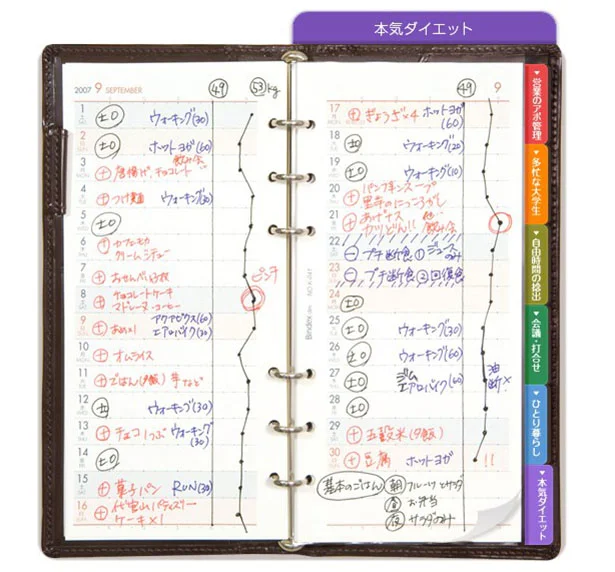 本気ダイエット
2007 9 SEPTEMBER
49 53kg
1 ±0 ウォーキング(30)
2 ±0 ホットヨガ(60)
飲み会
3 ＋唐揚げ、チョコレート
4 ＋つけ麺 ウォーキング(30)
5 ±0
6 ＋カフェモカ
クリームシチュー
7 ＋おせんべい 枚
ピンチ
8 ＋チョコレートケーキ
マドレーヌ・コーヒー
9 ＋あめ×1 アクアビクス(60)
エアロバイク(30)
10 ＋オムライス
11 ＋ごはん(夕飯) 芋など
12 ±0 ウォーキング(30)
13 ＋チョコ1つぶ ウォーキング
(30)
14 ±0
15 ＋菓子パン RUN(30)
16 ＋代官山パティスリー
ケーキ×1
49 9
17 ＋ぎょうざ×4 ホットヨガ
(60)
18 ±0 ウォーキング(20)
19 ±0 ウォーキング(10)
20 ＋パンプキンスープ
里芋のにっころがし
21 ＋あげナス 飲み会
カツどん!!
22 －プチ断食① ジュースのみ
23 －プチ断食② 回復食
24 ±0
25 ±0 ウォーキング(30)
26 ±0 ウォーキング(60)
27 ±0 ジム
エアロバイク(60)
油断×
28 ±0
29 ＋五穀米(夕飯)
30 ＋豆腐 ホットヨガ !!
基本のごはん 朝 フルーツとサラダ
昼 お弁当
夜 サラダのみ
Bindex
営業のアポ管理
多忙な大学生
自由時間の捻出
会議・打合せ
ひとり暮らし
本気ダイエット